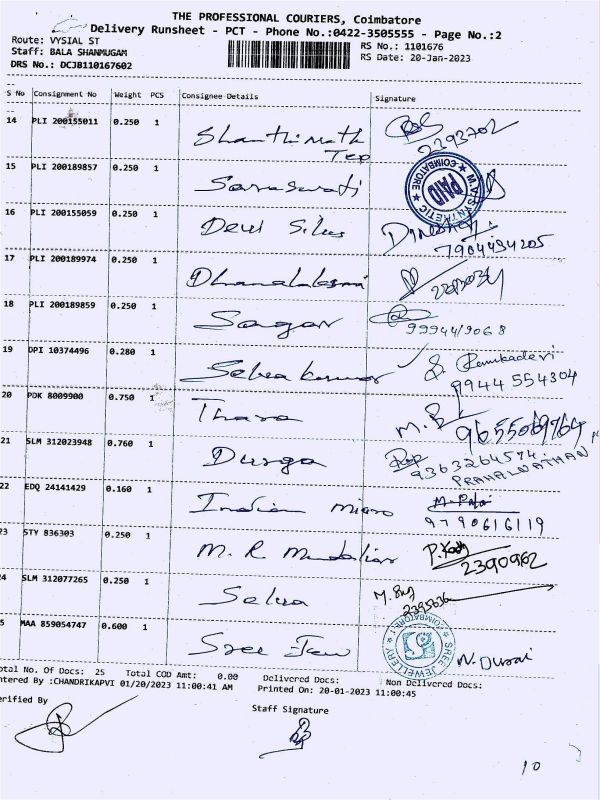 THE PROFESSIONAL COURIERS, Coimbatore
Delivery Runsheet - PCT - Phone No.:0422-3505555 - Page No.:2
Route: VYSIAL ST
Staff: BALA SHANMUGAM
RS No.: 1101676
DRS No.: DCJB110167602
RS Date: 20-Jan-2023
S No Consignment No Weight PCS Consignee Details Signature
14 PLI 200155011 0.250 1 Shanthi Math Tep 2293702
15 PLI 200189857 0.250 1 Saraswati
COIMBATORE PAID
16 PLI 200155059 0.250 1 Devi Silks Dineshen
7904494205
17 PLI 200189974 0.250 1 Dhanalakshmi
18 PLI 200189859 0.250 1 Sagar
99944/9068
19 DPI 10374496 0.280 1 Selva kumar S. Rambadevi
9944 554304
20 PDK 8009900 0.750 1 Thara M. B
9655069764
21 SLM 312023948 0.760 1 Durga
9363264574
PRAHALNATHAN
22 EDQ 24141429 0.160 1 Indian micro
9790616119
23 STY 836303 0.250 1 M. R Mudaliar P. Kodh
2390962
24 SLM 312077265 0.250 1 Selva
2395636
25 MAA 859054747 0.600 1 Sree Jew N. Durai
SREE JEWELLERY COIMBATORE
Total No. Of Docs: 25 Total COD Amt: 0.00 Delivered Docs: Non Delivered Docs:
Entered By :CHANDRIKAPVI 01/20/2023 11:00:41 AM Printed On: 20-01-2023 11:00:45
Verified By
Staff Signature
10